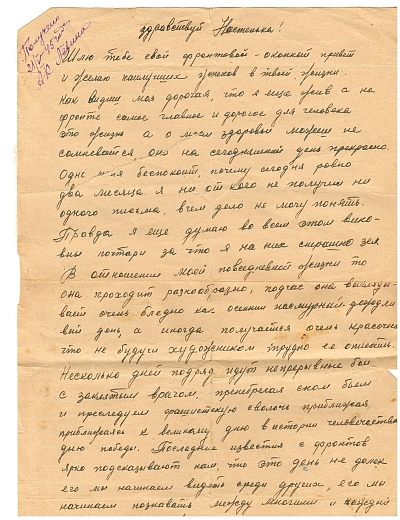 Получено
здравствуй Настенька!
Шлю тебе свой фронтовой-окопный привет
и желаю наилучших успехов в твоей жизни.
Как видиш моя дорогая, что я еще жив а на
фронте самое главное и дорогое для человека
это жизнь а о моем здоровьи можеш не
сомневатся, оно на сегодняшний день прекрасно.
Одно меня беспокоит, почему сегодня ровно
два месяца я ни от кого не получил ни
одного письма, в чем дело не могу понять.
Правда я еще думаю во всем этом вино-
вны почтари за что я на них страшно зол
В отношении моей повседневной жизни то
она проходит разнообразно, подчас она выгляди-
вает очень бледно как осенний пасмурний-дождли
вий день, а иногда получается очень красочна
что не будучи художником трудно ее описать.
Несколько дней подряд идут непрерывные бои
с заклятым врагом, пренебрегая сном бьем
и преследуем фашистскую сволочь приближая
приближаясь к великому дню в истории человечества
дню победы. Последние известия с фронтов
ярко подсказывают нам, что это день не далек
его мы начинаем видеть среди других, его мы
начинаем познавать между многими и каждый